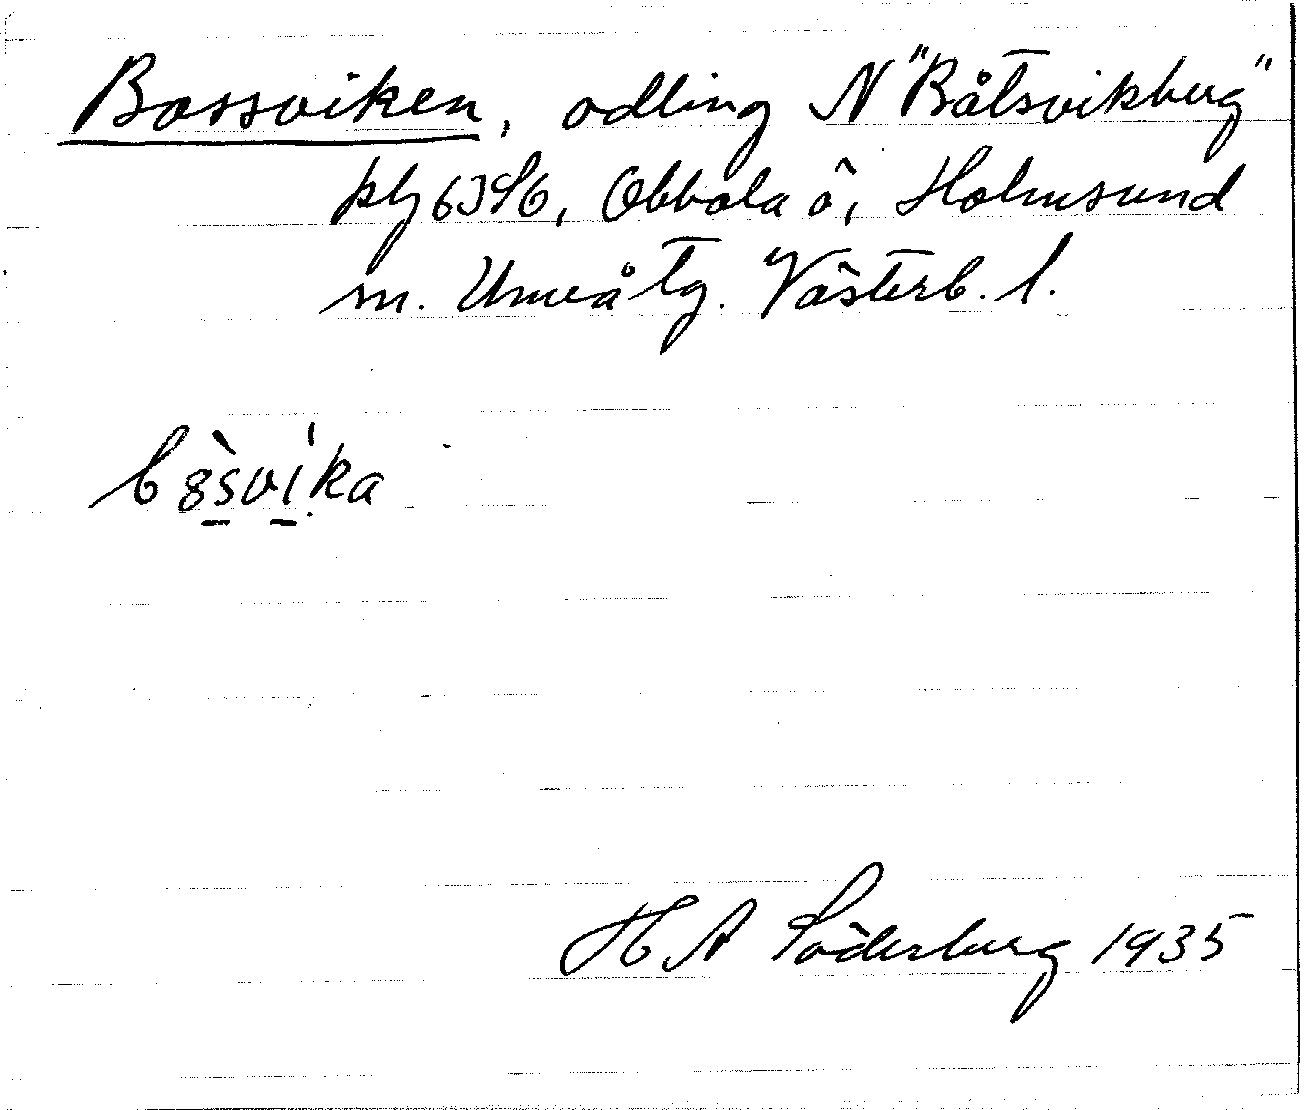 Bossviken, odling N "Båtsvikberg"
plg 63S6, Obbola ö, Holmsund
m. Umeå tg. Västerb. l.
b8̀svi̍ka
H A Söderberg 1935